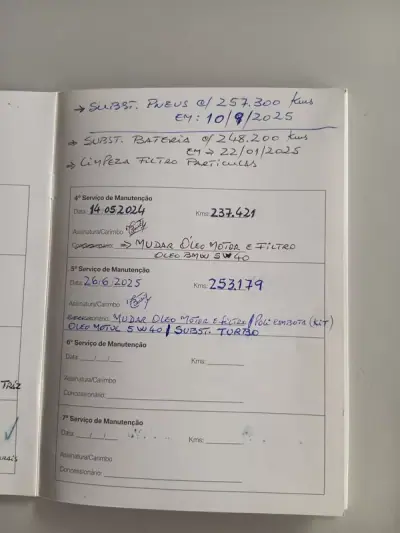 → SUBST. PNEUS c/ 257.300 Kms
EM: 10/9/2025
→ SUBST. BATERIA c/ 248.200 Kms
EM → 22/01/2025
→ LIMPEZA FILTRO PARTICULAS
4º Serviço de Manutenção
Data: 14.05.2024 Kms: 237.421
Assinatura/Carimbo
→ MUDAR ÓLEO MOTOR E FILTRO
OLEO BMW 5W40
5º Serviço de Manutenção
Data: 26.6.2025 Kms: 253.179
Assinatura/Carimbo
MUDAR OLEO MOTOR E FILTRO / POLI CAMBOTA (KIT)
OLEO MOTUL 5W40 / SUBST. TURBO
6º Serviço de Manutenção
Data: / / Kms:
Assinatura/Carimbo
Concessionário:
7º Serviço de Manutenção
Data: / / Kms:
Assinatura/Carimbo
Concessionário: